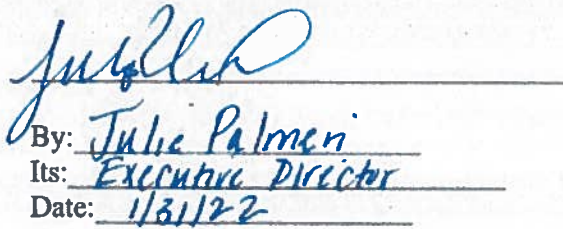 By: Julie Palmeri
Its: Executive Director
Date: 1/31/22